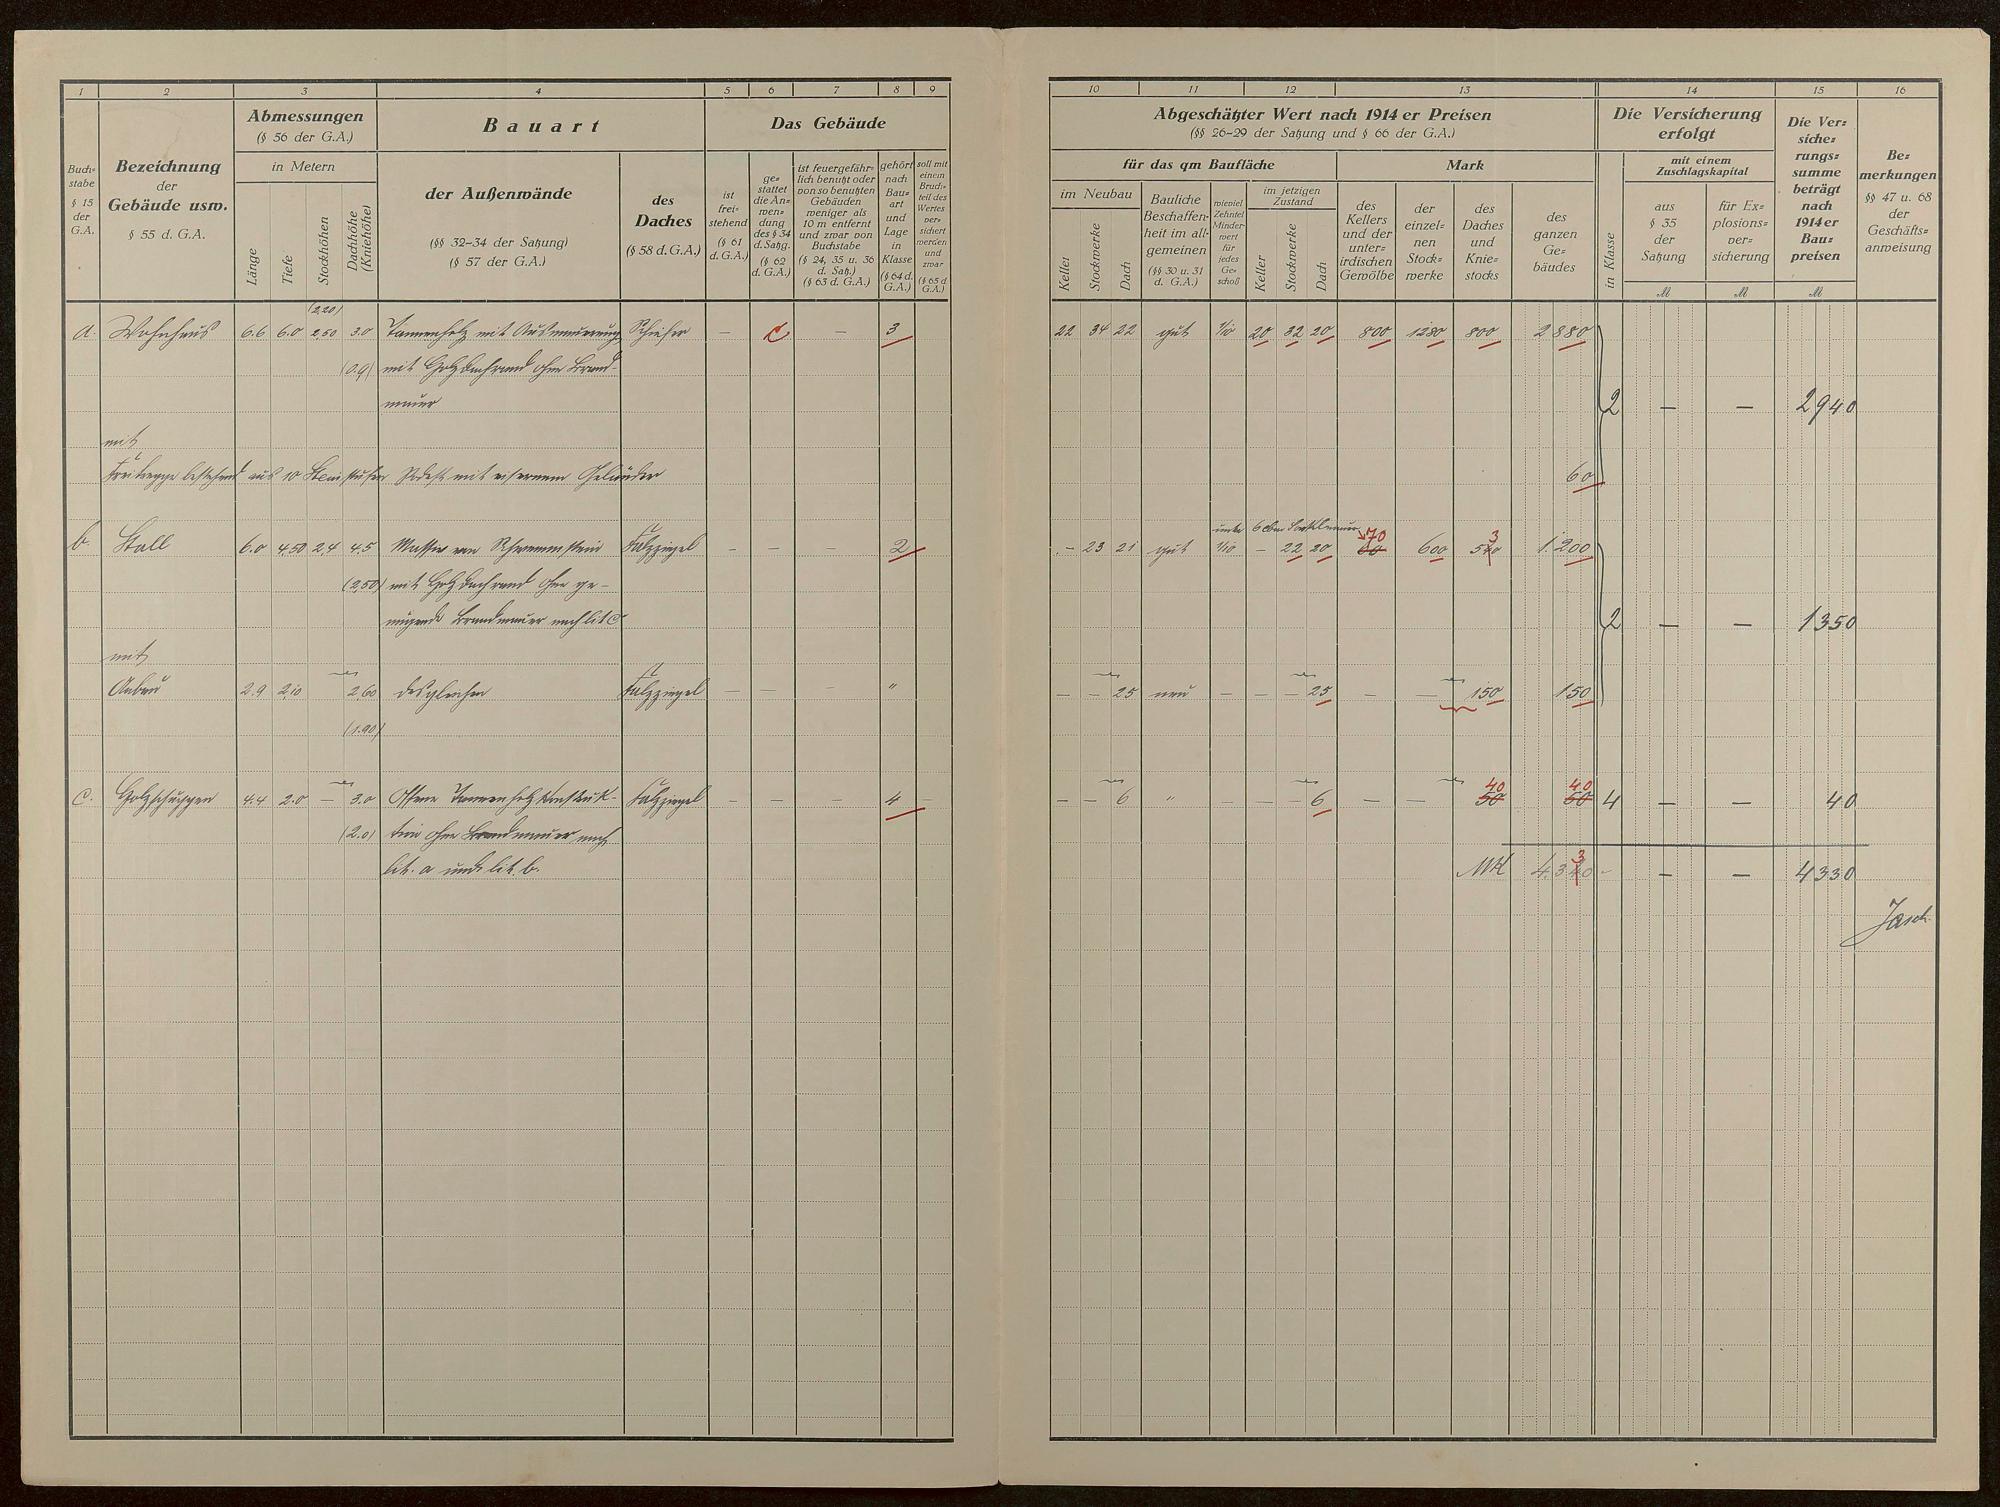 1 2 3 4 5 6 7 8 9
Buch=
stabe
§ 15
der
G.A.
Bezeichnung
der
Gebäude usw.
§ 55 d. G.A.
Abmessungen
(§ 56 der G.A.)
in Metern
Länge
Tiefe
Stockhöhen
Dachhöhe
(Kniehöhe)
Bauart
der Außenwände
(§§ 32-34 der Satzung)
(§ 57 der G.A.)
des
Daches
(§ 58 d. G.A.)
Das Gebäude
ist
frei=
stehend
(§ 61
d. G.A.)
ge=
stattet
die An=
wen=
dung
des § 34
d. Satzg.
(§ 62
d. G.A.)
ist feuergefähr=
lich benutzt oder
von so benutzten
Gebäuden
weniger als
10 m entfernt
und zwar von
Buchstabe
(§ 24, 35 u. 36
d. Satz.)
(§ 63 d. G.A.)
gehört
nach
Bau=
art
und
Lage
in
Klasse
(§ 64 d.
G.A.)
soll mit
einem
Bruch=
teil des
Wertes
ver=
sichert
werden
und
zwar
(§ 65 d
G.A.)
(2,20)
a. Wohnhaus 6.6 6.0 2,50 3.0 Tannenholz mit Ausmauerung Schiefer — C — 3
(0.9) mit Holzdachrand ohne Brand-
mauer
mit
Freitreppe bestehend aus 10 Steinstufen Podest mit eisernem Geländer
b. Stall 6.0 4,50 2,4 4.5 Massiv von Schwemmstein Falzziegel — — — 2
(2,50) mit Holzdachrand ohne ge-
nügende Brandmauer nach lit c
mit
Anbau 2.9 2,10 2,60 desgleichen Falzziegel — — — "
(1.90)
c. Holzschuppen 4.4 2.0 — 3.0 Offene Tannenholzkonstruk- Falzziegel — — — 4 —
(2.0) tion ohne Brandmauer nach
lit. a und lit. b.
10 11 12 13 14 15 16
Abgeschätzter Wert nach 1914 er Preisen
(§§ 26-29 der Satzung und § 66 der G.A.)
für das qm Baufläche
Mark
im Neubau
Keller
Stockwerke
Dach
Bauliche
Beschaffen=
heit im all=
gemeinen
(§§ 30 u. 31
d. G.A.)
wieviel
Zehntel
Minder=
wert
für
jedes
Ge=
schoß
im jetzigen
Zustand
Keller
Stockwerke
Dach
des
Kellers
und der
unter=
irdischen
Gewölbe
der
einzel=
nen
Stock=
werke
des
Daches
und
Knie=
stocks
des
ganzen
Ge=
bäudes
Die Versicherung
erfolgt
in Klasse
mit einem
Zuschlagskapital
aus
§ 35
der
Satzung
für Ex=
plosions=
ver=
sicherung
Die Ver=
siche=
rungs=
summe
beträgt
nach
1914 er
Bau=
preisen
Be=
merkungen
§§ 47 u. 68
der
Geschäfts=
anweisung
M M M
22 34 22 gut 1/10 20 32 20 800 1280 800 2880
2 — — 2940
60
6 cbm Sockelmauer 70
— 23 21 gut 1/10 — 22 20 60 600 3 1.200
2 — — 1350
— — 25 neu — — — 25 — — 150 150
40 40
— — 6 " — — — 6 — — 50 50 4 — — 40
3
Mk — — 4330
Jasch